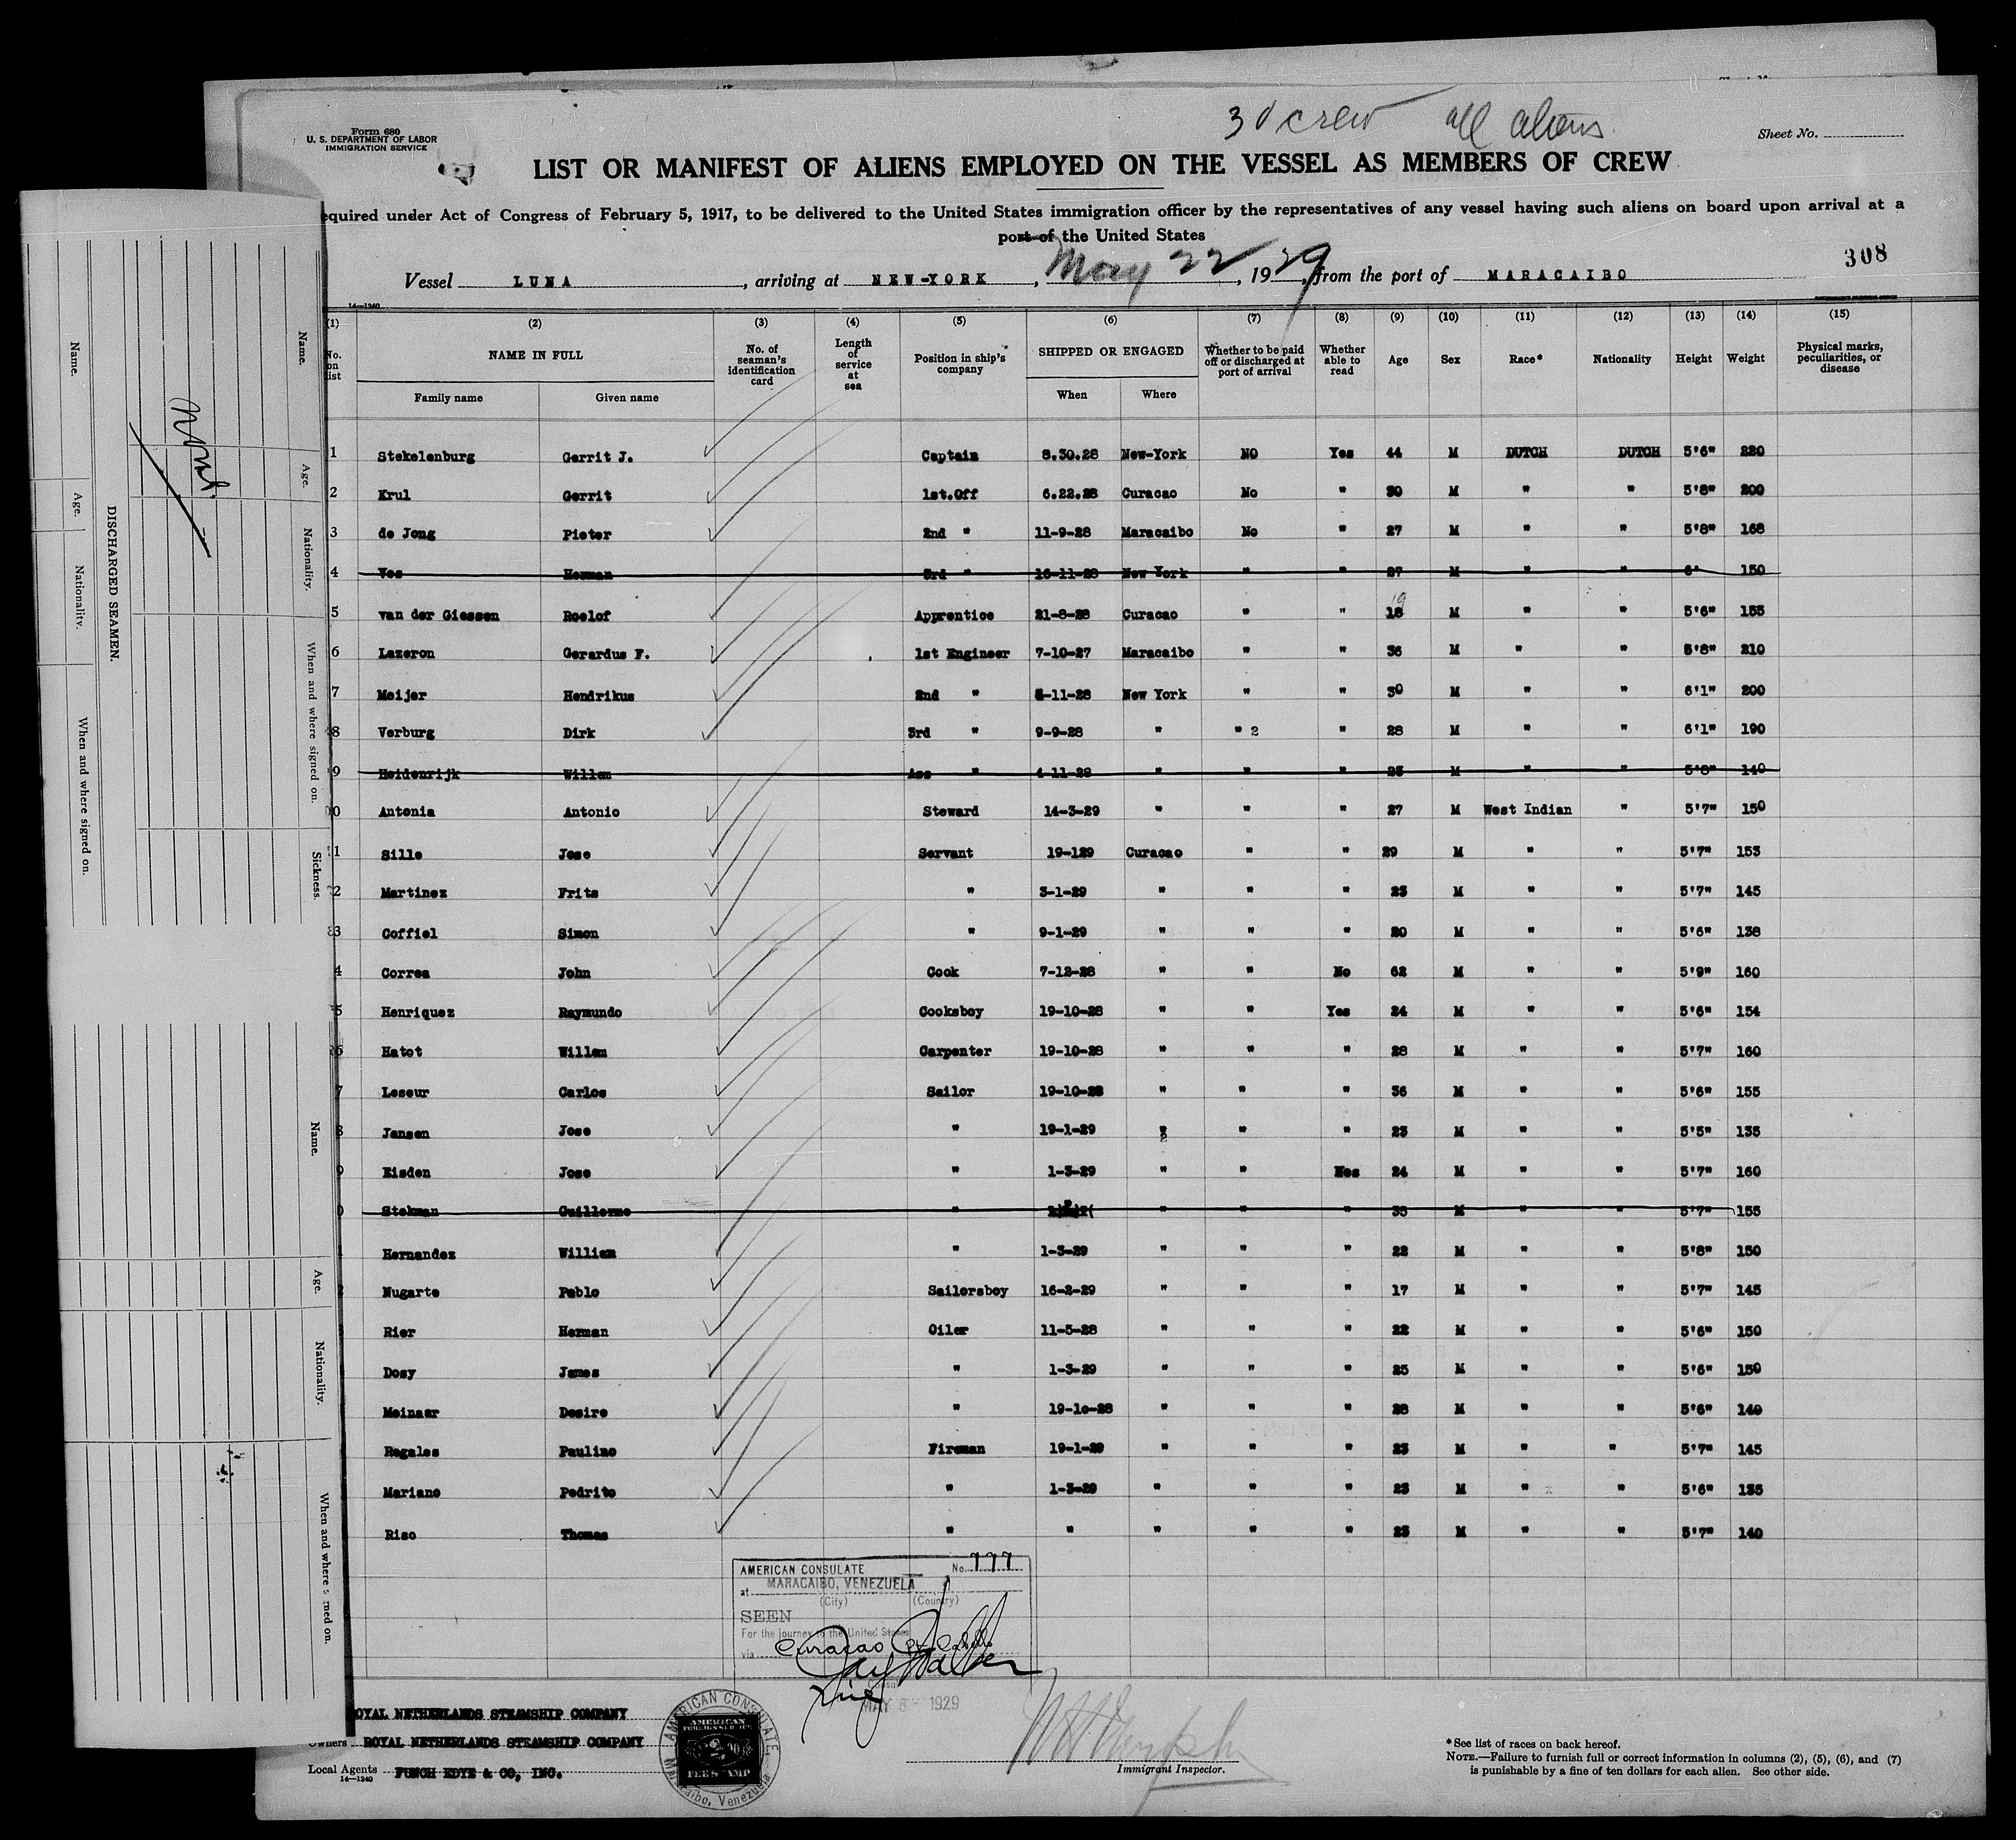 30 crew all aliens
Form 680
U. S. DEPARTMENT OF LABOR
IMMIGRATION SERVICE
Sheet No.
LIST OR MANIFEST OF ALIENS EMPLOYED ON THE VESSEL AS MEMBERS OF CREW
equired under Act of Congress of February 5, 1917, to be delivered to the United States immigration officer by the representatives of any vessel having such aliens on board upon arrival at a
port of the United States
308
Vessel LUNA, arriving at NEW-YORK, May 22, 1929, from the port of MARACAIBO
14—1240
(1) (2) (3) (4) (5) (6) (7) (8) (9) (10) (11) (12) (13) (14) (15)
No. on list NAME IN FULL Family name Given name No. of seaman's identification card Length of service at sea Position in ship's company SHIPPED OR ENGAGED When Where Whether to be paid off or discharged at port of arrival Whether able to read Age Sex Race* Nationality Height Weight Physical marks, peculiarities, or disease
1 Stekelenburg Gerrit J. Captain 8.30.28 New-York NO Yes 44 M DUTCH DUTCH 5'6" 220
2 Krul Gerrit 1st.Off 6.22.28 Curacao No " 30 M " " 5'8" 200
3 de Jong Pieter 2nd " 11-9-28 Maracaibo No " 27 M " " 5'8" 168
4 Vos Herman 3rd " 16-11-28 New York " " 27 M " " 6' 150
5 van der Giessen Roelof Apprentice 21-8-28 Curacao " " 18 19 M " " 5'6" 155
6 Lazeron Gerardus F. 1st Engineer 7-10-27 Maracaibo " " 36 M " " 5'8" 210
7 Meijer Hendrikus 2nd " 8-11-28 New York " " 30 M " " 6'1" 200
8 Verburg Dirk 3rd " 9-9-28 " " 2 " 28 M " " 6'1" 190
9 Heidenrijk Willem Ass " 4-11-28 " " " 25 M " " 5'8" 140
0 Antonia Antonio Steward 14-3-29 " " " 27 M West Indian " 5'7" 150
1 Sille Jose Servant 19-129 Curacao " " 29 M " " 5'7" 153
2 Martinez Frits " 3-1-29 " " " 23 M " " 5'7" 145
3 Coffiel Simon " 9-1-29 " " " 20 M " " 5'6" 138
4 Correa John Cook 7-12-28 " " No 62 M " " 5'9" 160
5 Henriquez Raymundo Cooksboy 19-10-28 " " Yes 24 M " " 5'6" 154
6 Hatot Willem Carpenter 19-10-28 " " " 28 M " " 5'7" 160
7 Leseur Carlos Sailor 19-10-28 " " " 36 M " " 5'6" 155
8 Jansen Jose " 19-1-29 " " " 23 M " " 5'5" 135
9 Eisden Jose " 1-3-29 " " 24 M " " 5'7" 160
0 Stekman Guillermo " " " " 35 M " " 5'7" 155
1 Hernandez William " 1-3-29 " " " 22 M " " 5'8" 150
Nugarte Pablo Sailorsboy 16-2-29 " " " 17 M " " 5'7" 145
Rier Herman Oiler 11-5-28 " " " 22 M " " 5'6" 150
Dosy James " 1-3-29 " " " 25 M " " 5'6" 150
Meinaar Desire " 19-10-28 " " " 28 M " " 5'6" 140
Regales Paulino Fireman 19-1-29 " " " 23 M " " 5'7" 145
Mariano Pedrito " 1-3-29 " " " 23 M " " 5'6" 135
Riso Thomas " " " " " 23 M " " 5'7" 140
AMERICAN CONSULATE No. 777
at MARACAIBO, VENEZUELA
(City) (Country)
SEEN
For the journey to the United States
via Curacao
MAY 8 - 1929
OYAL NETHERLANDS STEAMSHIP COMPANY
Owners ROYAL NETHERLANDS STEAMSHIP COMPANY
Local Agents FUNCH EDYE & CO, INC.
14—1240
AMERICAN CONSULATE
Maracaibo, Venezuela
AMERICAN
FOREIGN SERVICE
2
FEE STAMP
Immigrant Inspector.
*See list of races on back hereof.
NOTE.—Failure to furnish full or correct information in columns (2), (5), (6), and (7)
is punishable by a fine of ten dollars for each alien. See other side.
DISCHARGED SEAMEN.
Name. Age. Nationality. When and where signed on.
Name. Age. Nationality. When and where signed on. Sickness.
Name. Age. Nationality. When and where s ned on.